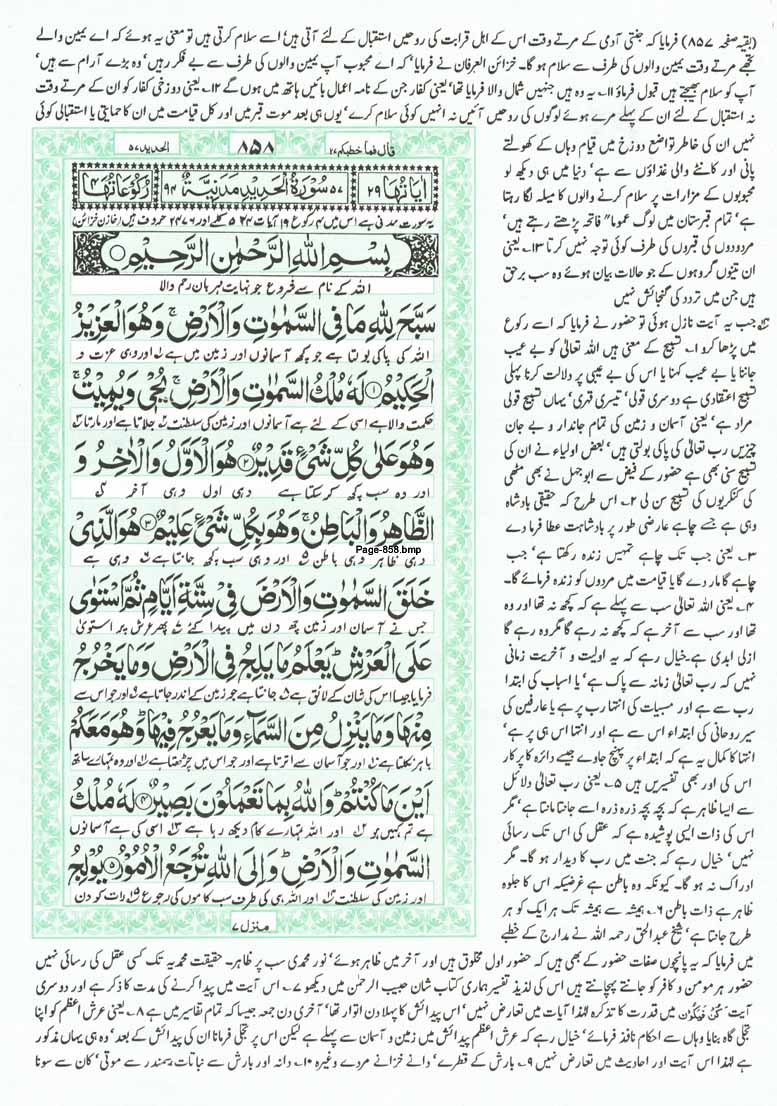 (بقیہ صفحہ ۸۵۷) فرمایا کہ جنتی آدمی کے مرتے وقت اس کے اہل قرابت کی روحیں استقبال کے لئے آتی ہیں' اسے سلام کرتی ہیں تو معنی یہ ہوئے کہ اے یمین والے
تجھے مرتے وقت یمین والوں کی طرف سے سلام ہو گا۔ خزائن العرفان نے فرمایا' کہ اے محبوب آپ یمین والوں کی طرف سے بے فکر رہیں' وہ بڑے آرام سے ہیں'
آپ کو سلام بھیجتے ہیں قبول فرماؤ ۱۱۔ یہ وہ ہیں جنہیں شمال والا فرمایا تھا' یعنی کفار جن کے نامہ اعمال بائیں ہاتھ میں ہوں گے ۱۲۔ یعنی دوزخی کفار کو ان کے مرتے وقت
نہ استقبال کے لئے ان کے پہلے مرے ہوئے لوگوں کی روحیں آئیں نہ انہیں کوئی سلام کرے' یوں ہی بعد موت قبر میں اور کل قیامت میں ان کا حمایتی یا استقبالی کوئی
نہیں ان کی خاطر تواضع دوزخ میں قیام وہاں کے کھولتے
پانی اور کانٹے والی غذاؤں سے ہے' دنیا میں ہی دیکھ لو
محبوبوں کے مزارات پر سلام کرنے والوں کا میلہ لگا رہتا
ہے' تمام قبرستان میں لوگ عموما" فاتحہ پڑھتے رہتے ہیں'
مردودوں کی قبروں کی طرف کوئی توجہ نہیں کرتا ۱۳۔ یعنی
ان تینوں گروہوں کے جو حالات بیان ہوئے وہ سب برحق
ہیں جن میں تردد کی گنجائش نہیں
جب یہ آیت نازل ہوئی تو حضور نے فرمایا کہ اسے رکوع
میں پڑھا کرو ۱۔ تسبیح کے معنی ہیں اللہ تعالٰی کو بے عیب
جاننا یا بے عیب کہنا یا اس کی بے عیبی پر دلالت کرنا پہلی
تسبیح اعتقادی ہے دوسری قولی' تیسری قہری' یہاں تسبیح قولی
مراد ہے' یعنی آسمان و زمین کی تمام جاندار و بے جان
چیزیں رب تعالٰی کی پاکی بولتی ہیں' بعض اولیاء نے ان کی
تسبیح سنی بھی ہے حضور کے فیض سے ابوجہل نے بھی مٹھی
کی کنکریوں کی تسبیح سن لی ۲۔ اس طرح کہ حقیقی بادشاہ
وہی ہے جسے چاہے عارضی طور پر بادشاہت عطا فرما دے
۳۔ یعنی جب تک چاہے تمہیں زندہ رکھتا ہے' جب
چاہے گا مار دے گا یا قیامت میں مردوں کو زندہ فرمائے گا۔
۴۔ یعنی اللہ تعالٰی سب سے پہلے ہے کہ کچھ نہ تھا اور وہ
تھا اور سب سے آخر ہے کہ کچھ نہ رہے گا مگر وہ رہے گا
ازلی ابدی ہے۔ خیال رہے کہ یہ اولیت و آخریت زمانی
نہیں کہ رب تعالٰی زمانہ سے پاک ہے' یا اسباب کی ابتدا
رب سے ہے اور مسببات کی انتہا رب پر ہے یا عارفین کی
سیر روحانی کی ابتداء اس سے ہے اور انتہا اس ہی پر ہے'
انتہا کا کمال یہ ہے کہ ابتداء پر پہنچ جاوے جیسے دائرہ کا پرکار
اس کی اور بھی تفسیریں ہیں ۵۔ یعنی رب تعالٰی دلائل
سے ایسا ظاہر ہے کہ بچہ بچہ ذرہ ذرہ اسے جانتا مانتا ہے' مگر
اس کی ذات ایسی پوشیدہ ہے کہ عقل کی اس تک رسائی
نہیں' خیال رہے کہ جنت میں رب کا دیدار ہو گا۔ مگر
ادراک نہ ہو گا۔ کیونکہ وہ باطن ہے غرضیکہ اس کا جلوہ
ظاہر ہے ذات باطن ۶۔ ہمیشہ سے ہمیشہ تک ہر ایک کو ہر
طرح جانتا ہے' شیخ عبدالحق رحمہ اللہ نے مدارج کے خطبے
قال فما خطبکم ۲۷
۸۵۸
الحدید ۵۷
اٰیاتُهَا ۲۹
۵۷ سُوْرَةُ الْحَدِیْدِ مَدَنِیَّةٌ ۹۴
رُکُوْعَاتُهَا ۴
یہ سورت مدنی ہے اس میں ۴ رکوع ۲۹ آیات ۵۴۴ کلمے اور ۲۴۷۶ حروف ہیں (خازن خزائن)
بِسْمِ اللّٰهِ الرَّحْمٰنِ الرَّحِیْمِ
اللہ کے نام سے شروع جو نہایت مہربان رحم والا
سَبَّحَ لِلّٰهِ مَا فِی السَّمٰوٰتِ وَالْاَرْضِ ۚ وَهُوَ الْعَزِیْزُ
اللہ کی پاکی بولتا ہے جو کچھ آسمانوں اور زمین میں ہے اور وہی عزت و
الْحَكِیْمُ ۝۱ لَهٗ مُلْكُ السَّمٰوٰتِ وَالْاَرْضِ ۚ یُحْیٖ وَیُمِیْتُ ۚ
حکمت والا ہے اسی کے لئے ہے آسمانوں اور زمین کی سلطنت جلاتا ہے اور مارتا
وَهُوَ عَلٰی كُلِّ شَیْءٍ قَدِیْرٌ ۝۲ هُوَ الْاَوَّلُ وَالْاٰخِرُ وَ
اور وہ سب کچھ کر سکتا ہے وہی اول وہی آخر
الظَّاهِرُ وَالْبَاطِنُ ۚ وَهُوَ بِكُلِّ شَیْءٍ عَلِیْمٌ ۝۳ هُوَ الَّذِیْ
وہی ظاہر وہی باطن اور وہی سب کچھ جانتا ہے وہی ہے
Page-858.bmp
خَلَقَ السَّمٰوٰتِ وَالْاَرْضَ فِیْ سِتَّةِ اَیَّامٍ ثُمَّ اسْتَوٰی
جس نے آسمان اور زمین چھ دن میں پیدا کئے پھر عرش پر استویٰ
عَلَی الْعَرْشِ ؕ یَعْلَمُ مَا یَلِجُ فِی الْاَرْضِ وَمَا یَخْرُجُ
فرمایا جیسا اس کی شان کے لائق ہے جانتا ہے جو زمین کے اندر جاتا ہے اور جو اس سے
مِنْهَا وَمَا یَنْزِلُ مِنَ السَّمَآءِ وَمَا یَعْرُجُ فِیْهَا ؕ وَهُوَ مَعَكُمْ
باہر نکلتا ہے اور جو آسمان سے اترتا ہے اور جو اس میں چڑھتا ہے اور وہ تمہارے ساتھ
اَیْنَ مَا كُنْتُمْ ؕ وَاللّٰهُ بِمَا تَعْمَلُوْنَ بَصِیْرٌ ۝۴ لَهٗ مُلْكُ
ہے تم کہیں ہو اور اللہ تمہارے کام دیکھ رہا ہے اسی کی ہے آسمانوں
السَّمٰوٰتِ وَالْاَرْضِ ؕ وَاِلَی اللّٰهِ تُرْجَعُ الْاُمُوْرُ ۝۵ یُوْلِجُ
اور زمین کی سلطنت اور اللہ ہی کی طرف سب کاموں کی رجوع رات کو دن
منزل ۷
میں فرمایا کہ یہ پانچوں صفات حضور کے بھی ہیں کہ حضور اول مخلوق ہیں اور آخر میں ظاہر ہوئے' نور محمدی سب پر ظاہر۔ حقیقت محمدیہ تک کسی عقل کی رسائی نہیں
حضور ہر مومن و کافر کو جانتے پہچانتے ہیں اس کی لذیذ تفسیر ہماری کتاب شان حبیب الرحمٰن میں دیکھو ۷۔ اس آیت میں پیدا کرنے کی مدت کا ذکر ہے اور دوسری
آیت کُنْ فَیَکُوْنُ میں قدرت کا تذکرہ لہٰذا آیات میں تعارض نہیں' اس پیدائش کا پہلا دن اتوار تھا' آخری دن جمعہ جیسا کہ تمام تفاسیر میں ہے ۸۔ یعنی عرش اعظم کو اپنا
تجلی گاہ بنایا وہاں سے احکام نافذ فرمائے' خیال رہے کہ عرش اعظم پیدائش میں زمین و آسمان سے پہلے ہے لیکن اس پر تجلی فرمانا ان کی پیدائش کے بعد' وہ ہی یہاں مذکور
ہے لہٰذا اس آیت اور احادیث میں تعارض نہیں ۹۔ بارش کے قطرے' دانے خزانے مردے وغیرہ ۱۰۔ دانہ اور بارش سے نباتات سمندر سے موتی' کان سے سونا